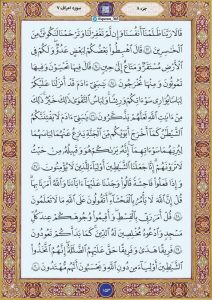 جزء ۸
سوره اعراف ۷
قَالَا رَبَّنَا ظَلَمْنَا أَنفُسَنَا وَإِن لَّمْ تَغْفِرْ لَنَا وَتَرْحَمْنَا لَنَكُونَنَّ مِنَ
ٱلْخَٰسِرِينَ ۝٢٣ قَالَ ٱهْبِطُوا۟ بَعْضُكُمْ لِبَعْضٍ عَدُوٌّ وَلَكُمْ فِى
ٱلْأَرْضِ مُسْتَقَرٌّ وَمَتَٰعٌ إِلَىٰ حِينٍ ۝٢٤ قَالَ فِيهَا تَحْيَوْنَ وَفِيهَا
تَمُوتُونَ وَمِنْهَا تُخْرَجُونَ ۝٢٥ يَٰبَنِىٓ ءَادَمَ قَدْ أَنزَلْنَا عَلَيْكُمْ
لِبَاسًا يُوَٰرِى سَوْءَٰتِكُمْ وَرِيشًا وَلِبَاسُ ٱلتَّقْوَىٰ ذَٰلِكَ خَيْرٌ ذَٰلِكَ
مِنْ ءَايَٰتِ ٱللَّهِ لَعَلَّهُمْ يَذَّكَّرُونَ ۝٢٦ يَٰبَنِىٓ ءَادَمَ لَا يَفْتِنَنَّكُمُ
ٱلشَّيْطَٰنُ كَمَآ أَخْرَجَ أَبَوَيْكُم مِّنَ ٱلْجَنَّةِ يَنزِعُ عَنْهُمَا لِبَاسَهُمَا
لِيُرِيَهُمَا سَوْءَٰتِهِمَآ إِنَّهُۥ يَرَىٰكُمْ هُوَ وَقَبِيلُهُۥ مِنْ حَيْثُ
لَا تَرَوْنَهُمْ إِنَّا جَعَلْنَا ٱلشَّيَٰطِينَ أَوْلِيَآءَ لِلَّذِينَ لَا يُؤْمِنُونَ ۝٢٧
وَإِذَا فَعَلُوا۟ فَٰحِشَةً قَالُوا۟ وَجَدْنَا عَلَيْهَآ ءَابَآءَنَا وَٱللَّهُ أَمَرَنَا بِهَا
قُلْ إِنَّ ٱللَّهَ لَا يَأْمُرُ بِٱلْفَحْشَآءِ أَتَقُولُونَ عَلَى ٱللَّهِ مَا لَا تَعْلَمُونَ ۝٢٨
قُلْ أَمَرَ رَبِّى بِٱلْقِسْطِ وَأَقِيمُوا۟ وُجُوهَكُمْ عِندَ كُلِّ
مَسْجِدٍ وَٱدْعُوهُ مُخْلِصِينَ لَهُ ٱلدِّينَ كَمَا بَدَأَكُمْ تَعُودُونَ ۝٢٩
فَرِيقًا هَدَىٰ وَفَرِيقًا حَقَّ عَلَيْهِمُ ٱلضَّلَٰلَةُ إِنَّهُمُ ٱتَّخَذُوا۟
ٱلشَّيَٰطِينَ أَوْلِيَآءَ مِن دُونِ ٱللَّهِ وَيَحْسَبُونَ أَنَّهُم مُّهْتَدُونَ ۝٣٠
۱۵۳